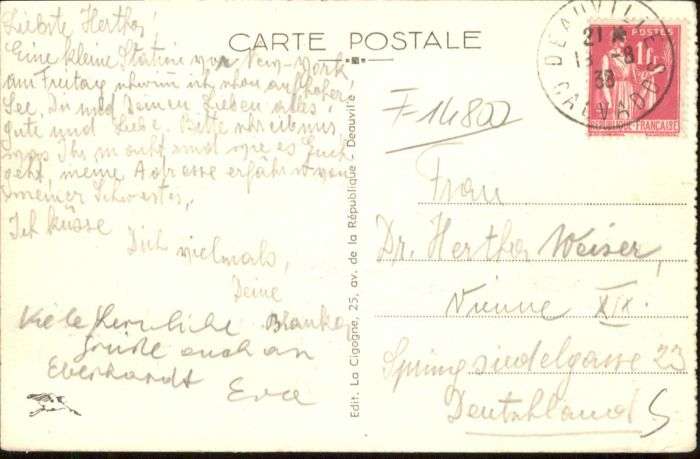 CARTE POSTALE
Liebste Hertha!
Eine kleine Station vor New-York
am Freitag schwimm ich schon auf hoher
See. Dir und Deinen Lieben alles
gute und Liebe. Bitte schreib mir
was Ihr macht und wie es Euch
geht, meine Adresse erfährst von
meiner Schwester.
Ich küsse
Dich vielmals,
Deine
Blanka
Viele herzliche
Grüße auch an
Eberhardt
Eva
Edit. La Cigogne, 25, av. de la République - Deauville
DEAUVILLE
21
13 -8
38
CALVADOS
POSTES
1F
REPUBLIQUE FRANÇAISE
F-14802
Frau
Dr. Hertha Weiser,
Vienne XIX.
Springsiedelgasse 23
Deutschland